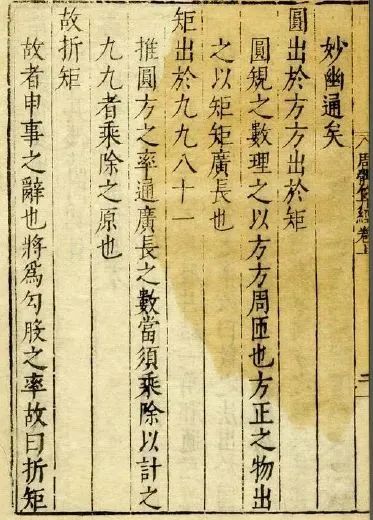 周髀算經卷上
妙幽通矣
圓出於方方出於矩
圓規之數理之以方方周匝也方正之物出
之以矩矩廣長也
矩出於九九八十一
推圓方之率通廣長之數當須乘除以計之
九九者乘除之原也
故折矩
故者申事之辭也將爲勾股之率故曰折矩